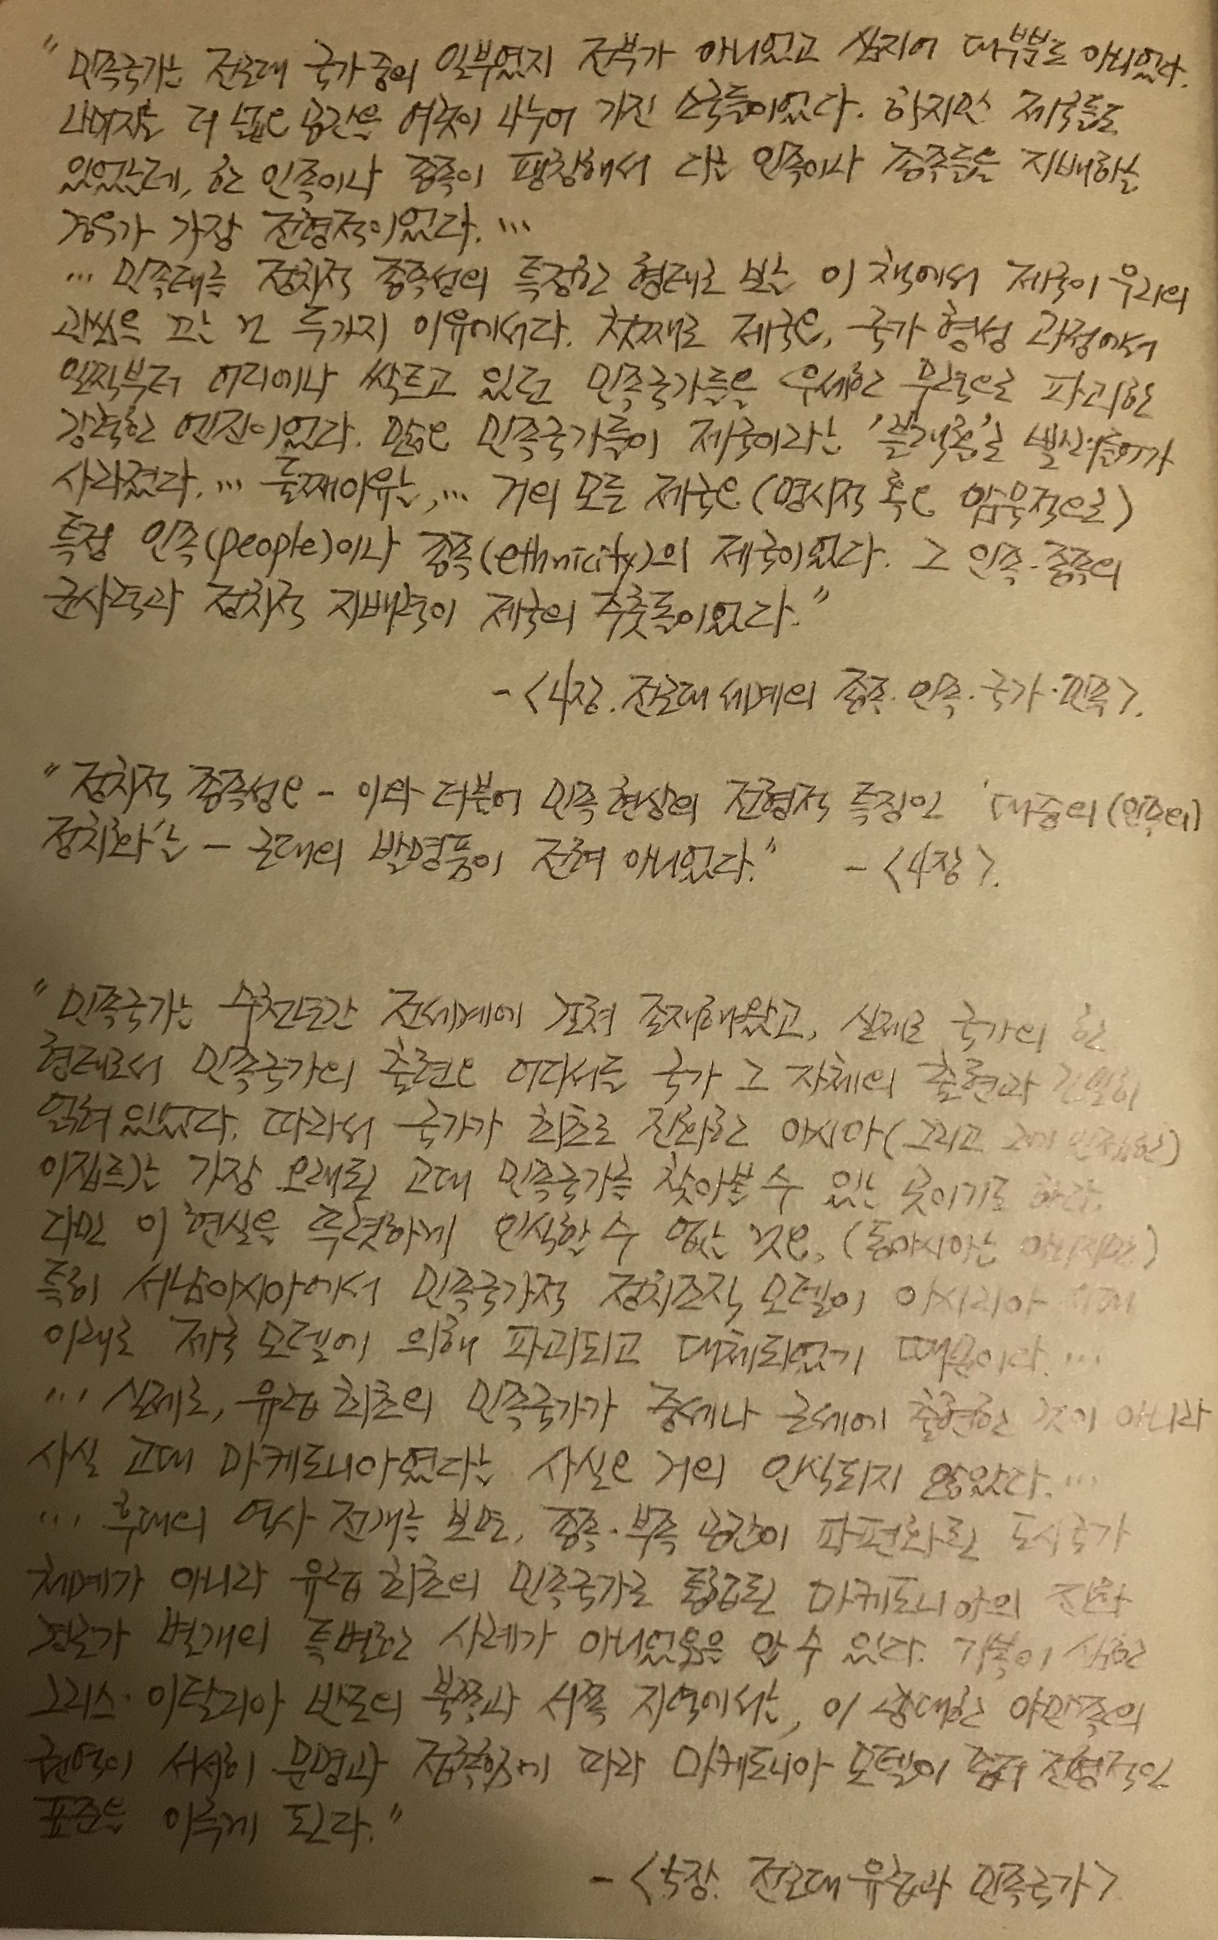 "민족국가는 전근대 국가중의 일부였지 전부가 아니었고 심지어 대부분도 아니었다.
나머지는 더 넓은 공간을 여럿이 나누어 가진 소국들이었다. 하지만 제국들도
있었는데, 한 인족이나 종족이 팽창해서 다른 인족이나 종족들을 지배하는
경우가 가장 전형적이었다. …
… 민족대를 정치적 종족성의 특정한 형태로 보는 이 책에서 제국이 우리의
관심을 끄는 건 두가지 이유에서다. 첫째로 제국은, 국가 형성 과정에서
일찍부터 어디에나 싹트고 있던 민족국가들을 우세한 무력으로 파괴한
강력한 엔진이었다. 많은 민족국가들이 제국이라는 '블랙홀'로 빨려들어가
사라졌다. … 둘째이유는, … 거의 모든 제국은 (명시적 혹은 암묵적으로)
특정 인족(people)이나 종족(ethnicity)의 제국이었다. 그 인족·종족의
군사력과 정치적 지배력이 제국의 주춧돌이었다."
- <4장. 전근대 세계의 종족·인족·국가·민족>.
"정치적 종족성은 - 이와 더불어 민족 현상의 전형적 특징인 '대중의 (인족의)
정치화'는 - 근대의 발명품이 전혀 아니었다." - <4장>.
"민족국가는 수천년간 전세계에 걸쳐 존재해왔고, 실제로 국가의 한
형태로서 민족국가의 출현은 어디서든 국가 그 자체의 출현과 긴밀히
얽혀있었다. 따라서 국가가 최초로 진화한 아시아(그리고 그에 인접한
이집트)는 가장 오래된 고대 민족국가를 찾아볼 수 있는 곳이기도 하다.
다만 이 현실을 뚜렷하게 인식할 수 없는 것은, (동아시아는 아니지만)
특히 서남아시아에서 민족국가적 정치조직 모델이 아시리아 시대
이래로 제국 모델에 의해 파괴되고 대체되었기 때문이다. …
… 실제로, 유럽 최초의 민족국가가 중세나 근세에 출현한 것이 아니라
사실 고대 마케도니아였다는 사실은 거의 인식되지 않았다. …
… 후대의 역사 전개를 보면, 종족·부족 공간이 파편화된 도시국가
체계가 아니라 유럽 최초의 민족국가로 통합된 마케도니아의 진화
경로가 별개의 특별한 사례가 아니었음을 알 수 있다. 기복이 심한
그리스·이탈리아 반도의 북쪽과 서쪽 지역에서는, 이 광대한 야만족의
권역이 서서히 문명과 접촉함에 따라 마케도니아 모델이 좀더 전형적인
표준을 이루게 된다."
- <5장. 전근대 유럽과 민족국가>